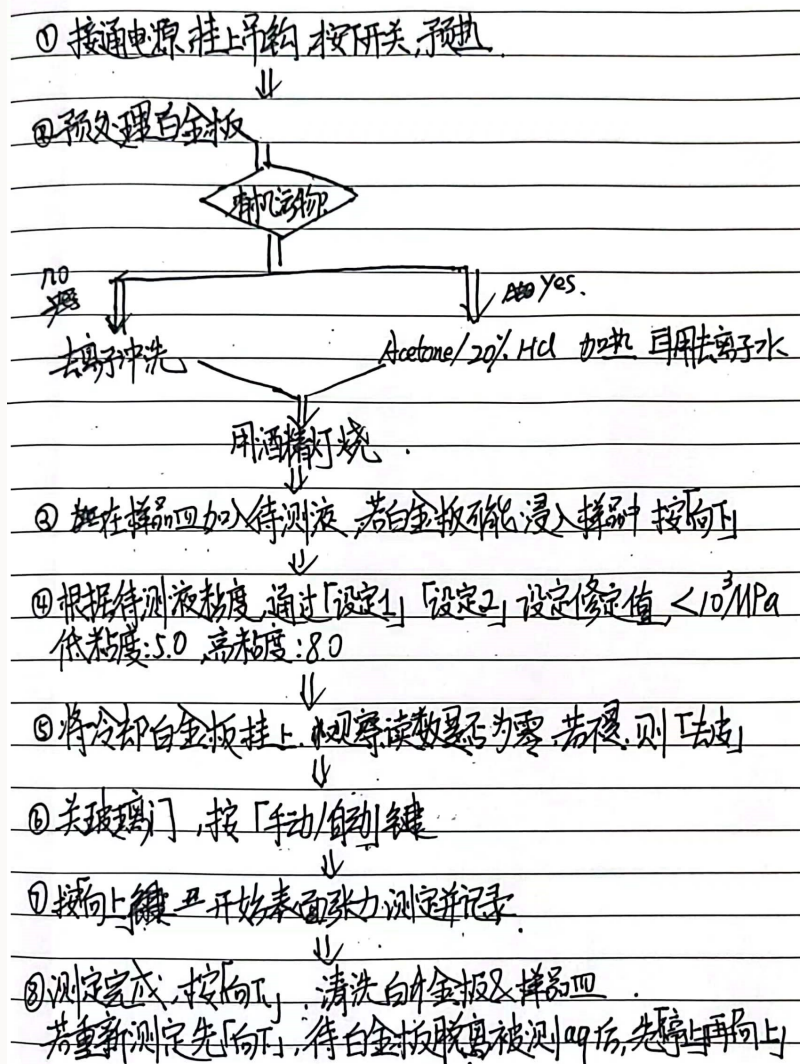 ① 接通电源,挂上吊钩,按下开关,预热.
②预处理白金板
有机污物?
no
yes.
去离子冲洗
Acetone/20% HCl 加热 再用去离子水
用酒精灯烧.
③ 在样品皿加入待测液,若白金板可能浸入样品中 按「向下」
④根据待测液粘度,通过「设定1」「设定2」设定修定值,<10³MPa
低粘度:5.0,高粘度:8.0
⑤将冷却白金板挂上,观察读数是否为零,若不是,则「去皮」
⑥ 关玻璃门,按「手动/自动」键
⑦按「向上」键 开始表面张力测定并记录.
⑧测定完成,按「向下」,清洗白金板&样品皿.
若重新测定先「向下」,待白金板脱离被测aq后,先「停止」再「向上」